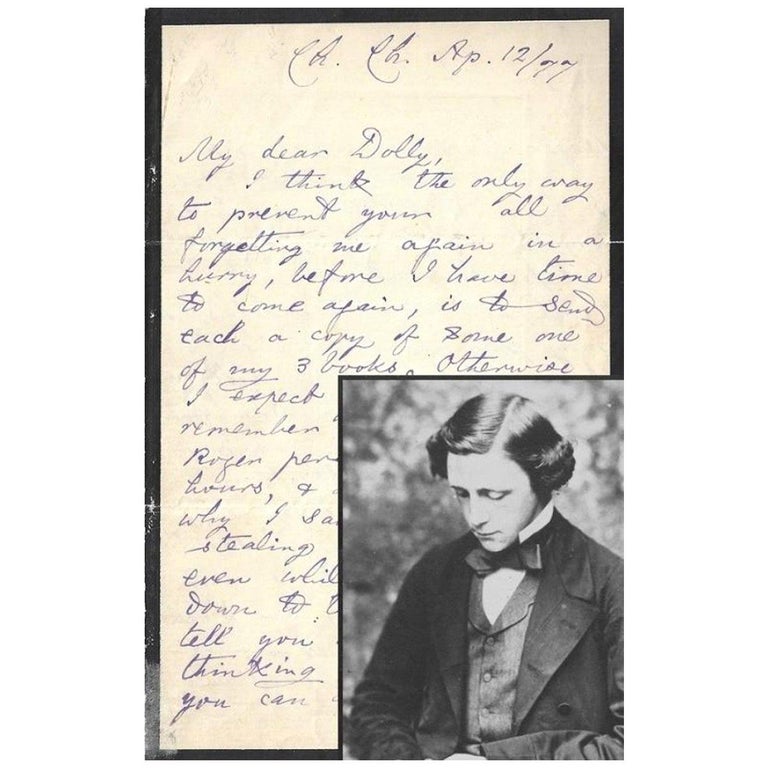 Ch. Ch. Ap. 12/77
My dear Dolly,
I think the only way
to prevent your all
forgetting me again in a
hurry, before I have time
to come again, is to send
each a copy of some one
of my 3 books. Otherwise
I expect
remember
Roger per
hours, &
why I sa
stealing
even whil
down to
tell you
thinking
you can